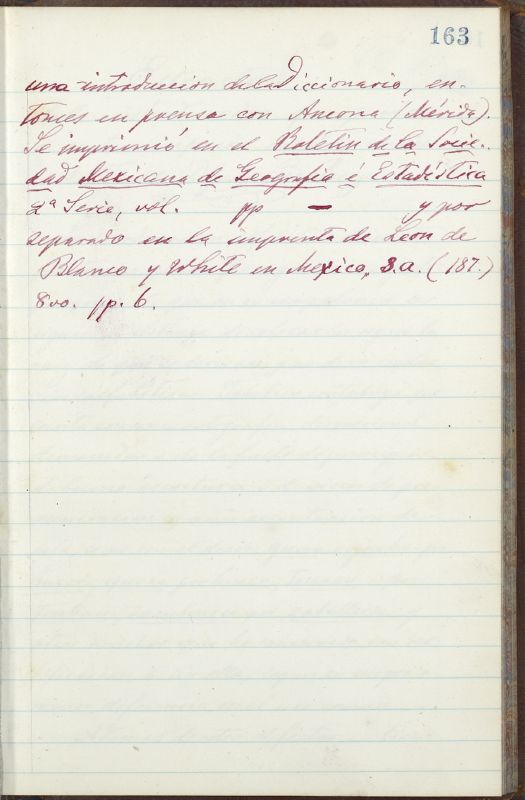 163
una introduccion del la Diccionario, en-
tonces en prensa con Ancona (Mérida).
Se imprimió en el Boletin de la Socie-
dad Mexicana de Geografia é Estadistica
2ª Serie, vol. pp — y por
separado en la imprenta de Leon de
Blanco y White en Mexico, s.a. (187.)
8vo. pp. 6.